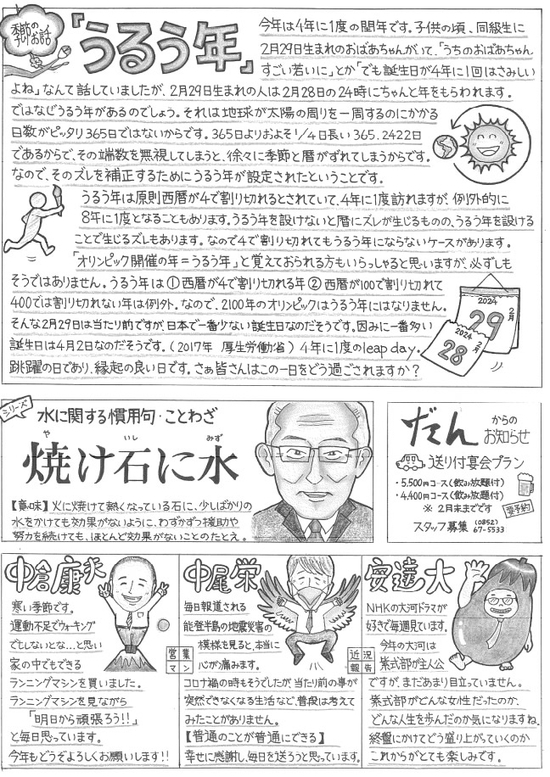 季節のお話
『うるう年』
今年は4年に1度の閏年です。子供の頃、同級生に
2月29日生まれのおばあちゃんがいて、「うちのおばあちゃん
すごい若いに」とか「でも誕生日が4年に1回はさみしい
よね」なんて話していましたが、2月29日生まれの人は2月28日の24時にちゃんと年をもらわれます。
ではなぜうるう年があるのでしょう。それは地球が太陽の周りを一周するのにかかる
日数がピッタリ365日ではないからです。365日よりおよそ1/4日長い365.2422日
であるからで、その端数を無視してしまうと、徐々に季節と暦がずれてしまうからです。
なので、そのズレを補正するためにうるう年が設定されたということです。
うるう年は原則西暦が4で割り切れるとされていて、4年に1度訪れますが、例外的に
8年に1度となることもあります。うるう年を設けないと暦にズレが生じるものの、うるう年を設ける
ことで生じるズレもあります。なので4で割り切れてもうるう年にならないケースがあります。
「オリンピック開催の年=うるう年」と覚えておられる方もいらっしゃると思いますが、必ずしも
そうではありません。うるう年は①西暦が4で割り切れる年②西暦が100で割り切れて
400では割り切れない年は例外。なので、2100年のオリンピックはうるう年にはなりません。
そんな2月29日は当たり前ですが、日本で一番少ない誕生日なのだそうです。因みに一番多い
誕生日は4月2日なのだそうです。(2017年 厚生労働省) 4年に1度のleap day.
跳躍の日であり、縁起の良い日です。さぁ皆さんはこの一日をどう過ごされますか?
2024
2月
29
2024
2月
28
シリーズ
水に関する慣用句・ことわざ
焼け石に水
や いし みず
【意味】火に焼けて熱くなっている石に、少しばかりの
水をかけても効果がないように、わずかずつ援助や
努力を続けても、ほとんど効果がないことのたとえ。
だんからのお知らせ
送り付宴会プラン
・5,500円コース(飲み放題付)
・4,400円コース(飲み放題付)
※ 2月末までです
要予約
スタッフ募集 (0852)67-5533
営業マン
近況報告
中倉康永
寒い季節です。
運動不足でウォーキング
でしないとな…と思い
家の中でもできる
ランニングマシンを買いました。
ランニングマシンを見ながら
「明日から頑張ろう!!」
と毎日思っています。
今年もどうぞよろしくお願いします!!
中尾栄
毎日報道される
能登半島の地震災害の
模様を見ると、本当に
心が痛みます。
コロナ禍の時もそうでしたが、当たり前の事が
突然できなくなる生活など、普段は考えて
みたことがありません。
【普通のことが普通にできる】
幸せに感謝し、毎日を送ろうと思っています。
安達大
NHKの大河ドラマが
好きで毎週見ています。
今年の大河は
紫式部が主人公
ですが、まだあまり目立っていません。
紫式部がどんな女性だったのか、
どんな人生を歩んだのか気になりますね。
終盤にかけてどう盛り上がっていくのか
これからがとても楽しみです。